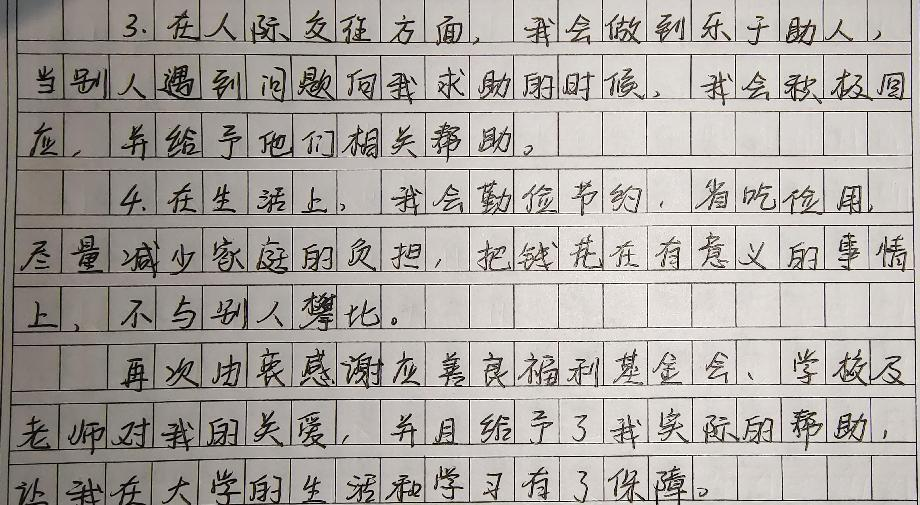 3. 在人际交往方面，我会做到乐于助人，
当别人遇到问题向我求助的时候，我会积极回
应，并给予他们相关帮助。
4. 在生活上，我会勤俭节约，省吃俭用，
尽量减少家庭的负担，把钱花在有意义的事情
上，不与别人攀比。
再次由衷感谢应善良福利基金会、学校及
老师对我的关爱，并且给予了我实际的帮助，
让我在大学的生活和学习有了保障。